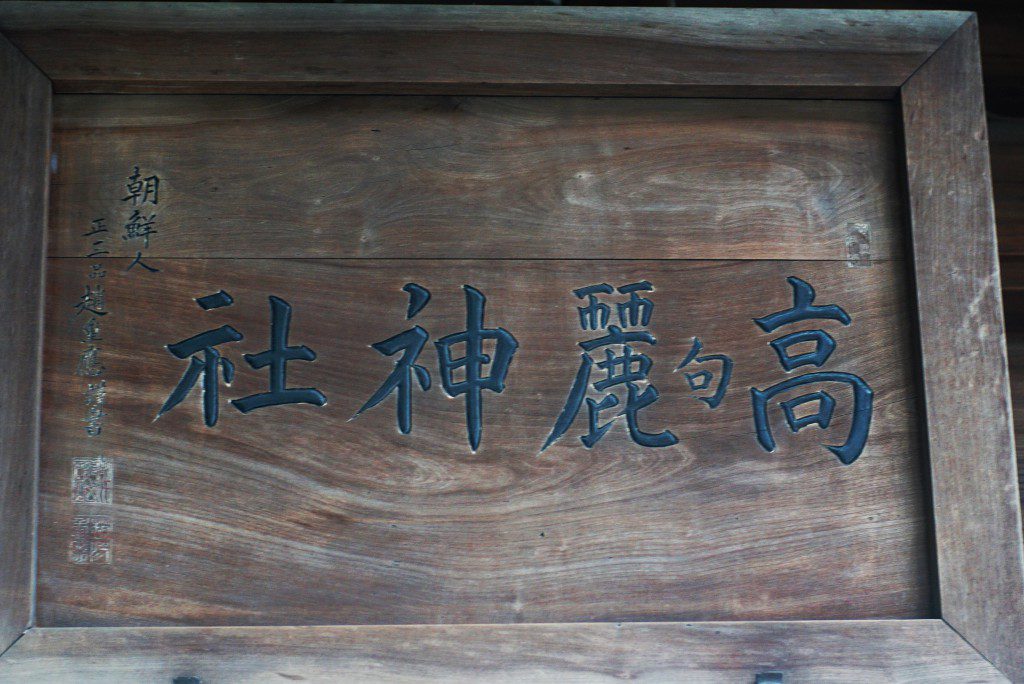 高句麗神社
朝鮮人
正二品趙重應謹書